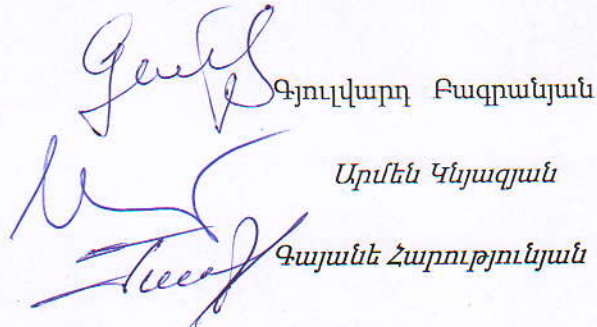 Գյուլվարդ Բագրանյան
Արմեն Կնյազյան
Գայանե Հարությունյան